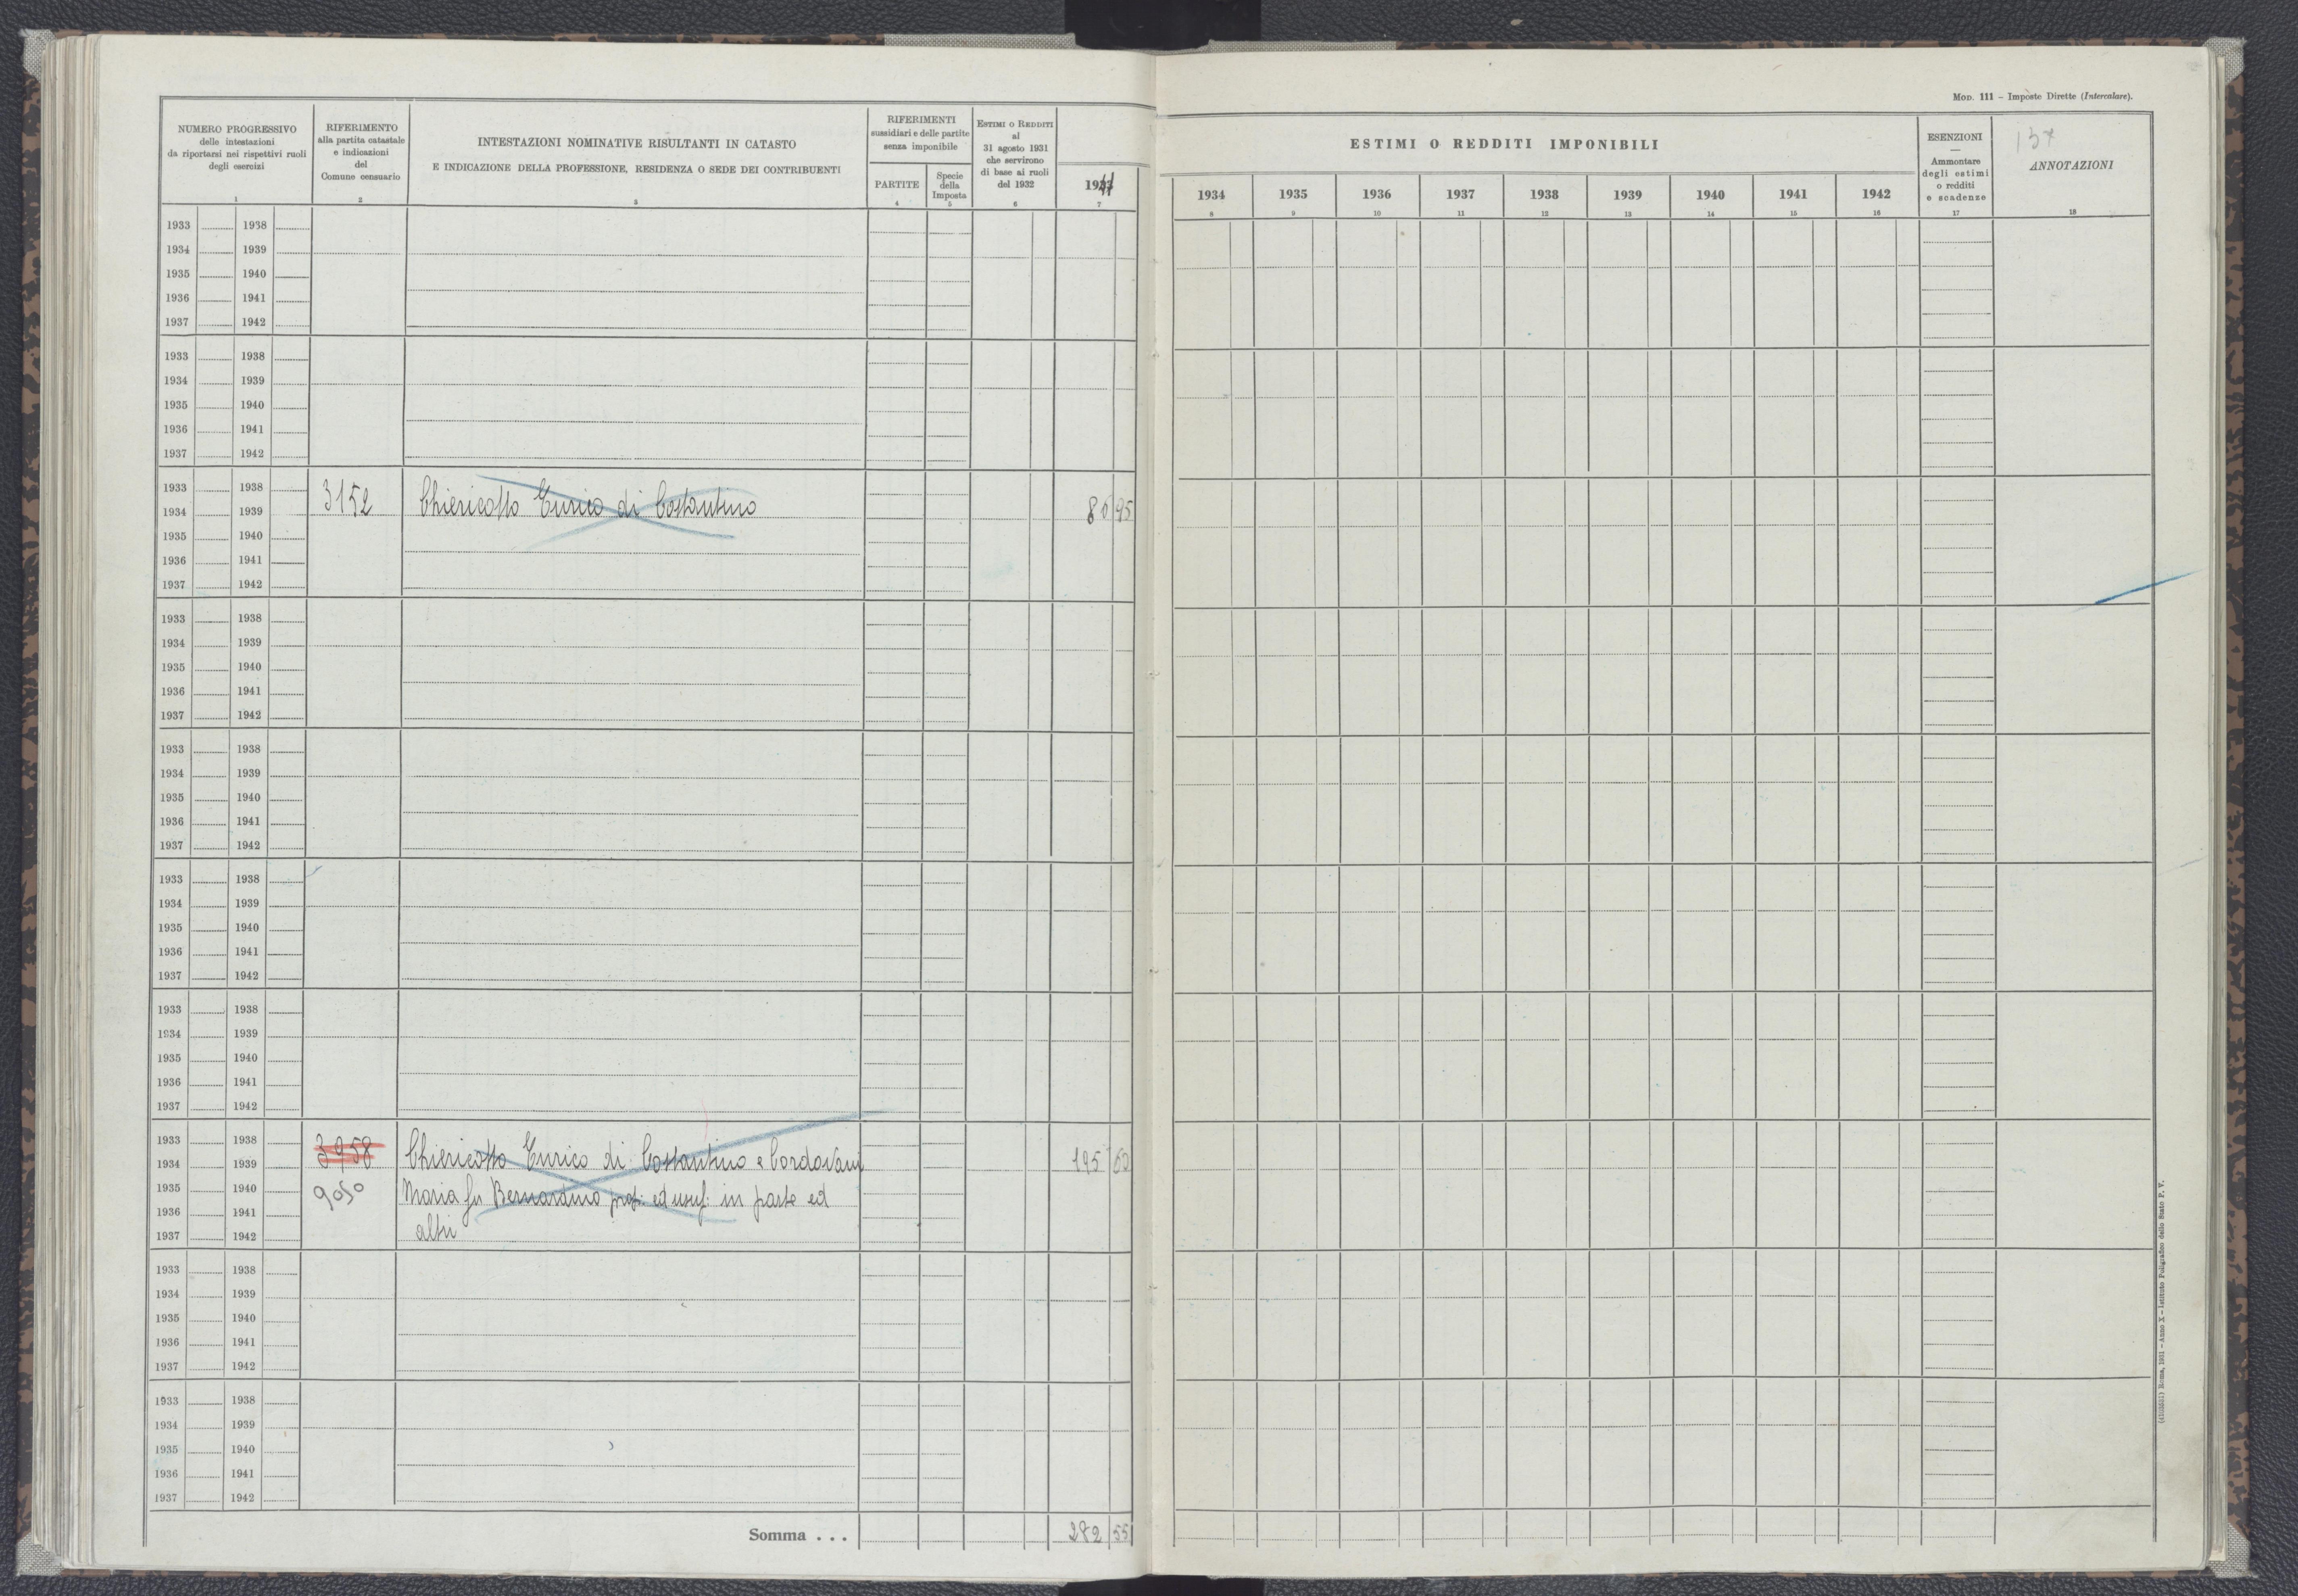 MOD. 111 – Imposte Dirette (Intercalare).
NUMERO PROGRESSIVO
delle intestazioni
da riportarsi nei rispettivi ruoli
degli esercizi
1
RIFERIMENTO
alla partita catastale
e indicazioni
del
Comune censuario
2
INTESTAZIONI NOMINATIVE RISULTANTI IN CATASTO
E INDICAZIONE DELLA PROFESSIONE, RESIDENZA O SEDE DEI CONTRIBUENTI
3
RIFERIMENTI
sussidiari e delle partite
senza imponibile
PARTITE
4
Specie
della
Imposta
5
ESTIMI O REDDITI
al
31 agosto 1931
che servirono
di base ai ruoli
del 1932
6
7
ESTIMI O REDDITI IMPONIBILI
1934 1935 1936 1937 1938 1939 1940 1941 1942
8 9 10 11 12 13 14 15 16
ESENZIONI
—
Ammontare
degli estimi
o redditi
e scadenze
17
137
ANNOTAZIONI
18
1933 1938
1934 1939
1935 1940
1936 1941
1937 1942
1933 1938
1934 1939
1935 1940
1936 1941
1937 1942
1933 1938
3152 Chiericotto Enrico di Costantino
1934 1939
1935 1940
1936 1941
1937 1942
1933 1938
1934 1939
1935 1940
1936 1941
1937 1942
1933 1938
1934 1939
1935 1940
1936 1941
1937 1942
1933 1938
1934 1939
1935 1940
1936 1941
1937 1942
1933 1938
1934 1939
1935 1940
1936 1941
1937 1942
1933 1938
3958 Chiericotto Enrico di Costantino e Cordovani 195 60
1934 1939
1935 1940
9050 Maria fu Bernardino prop: ed usuf: in parte ed
1936 1941
altri
1937 1942
1933 1938
1934 1939
1935 1940
1936 1941
1937 1942
1933 1938
1934 1939
1935 1940
1936 1941
1937 1942
Somma . . . 282 55
Roma, 1931 – Anno X – Istituto Poligrafico dello Stato P. V.